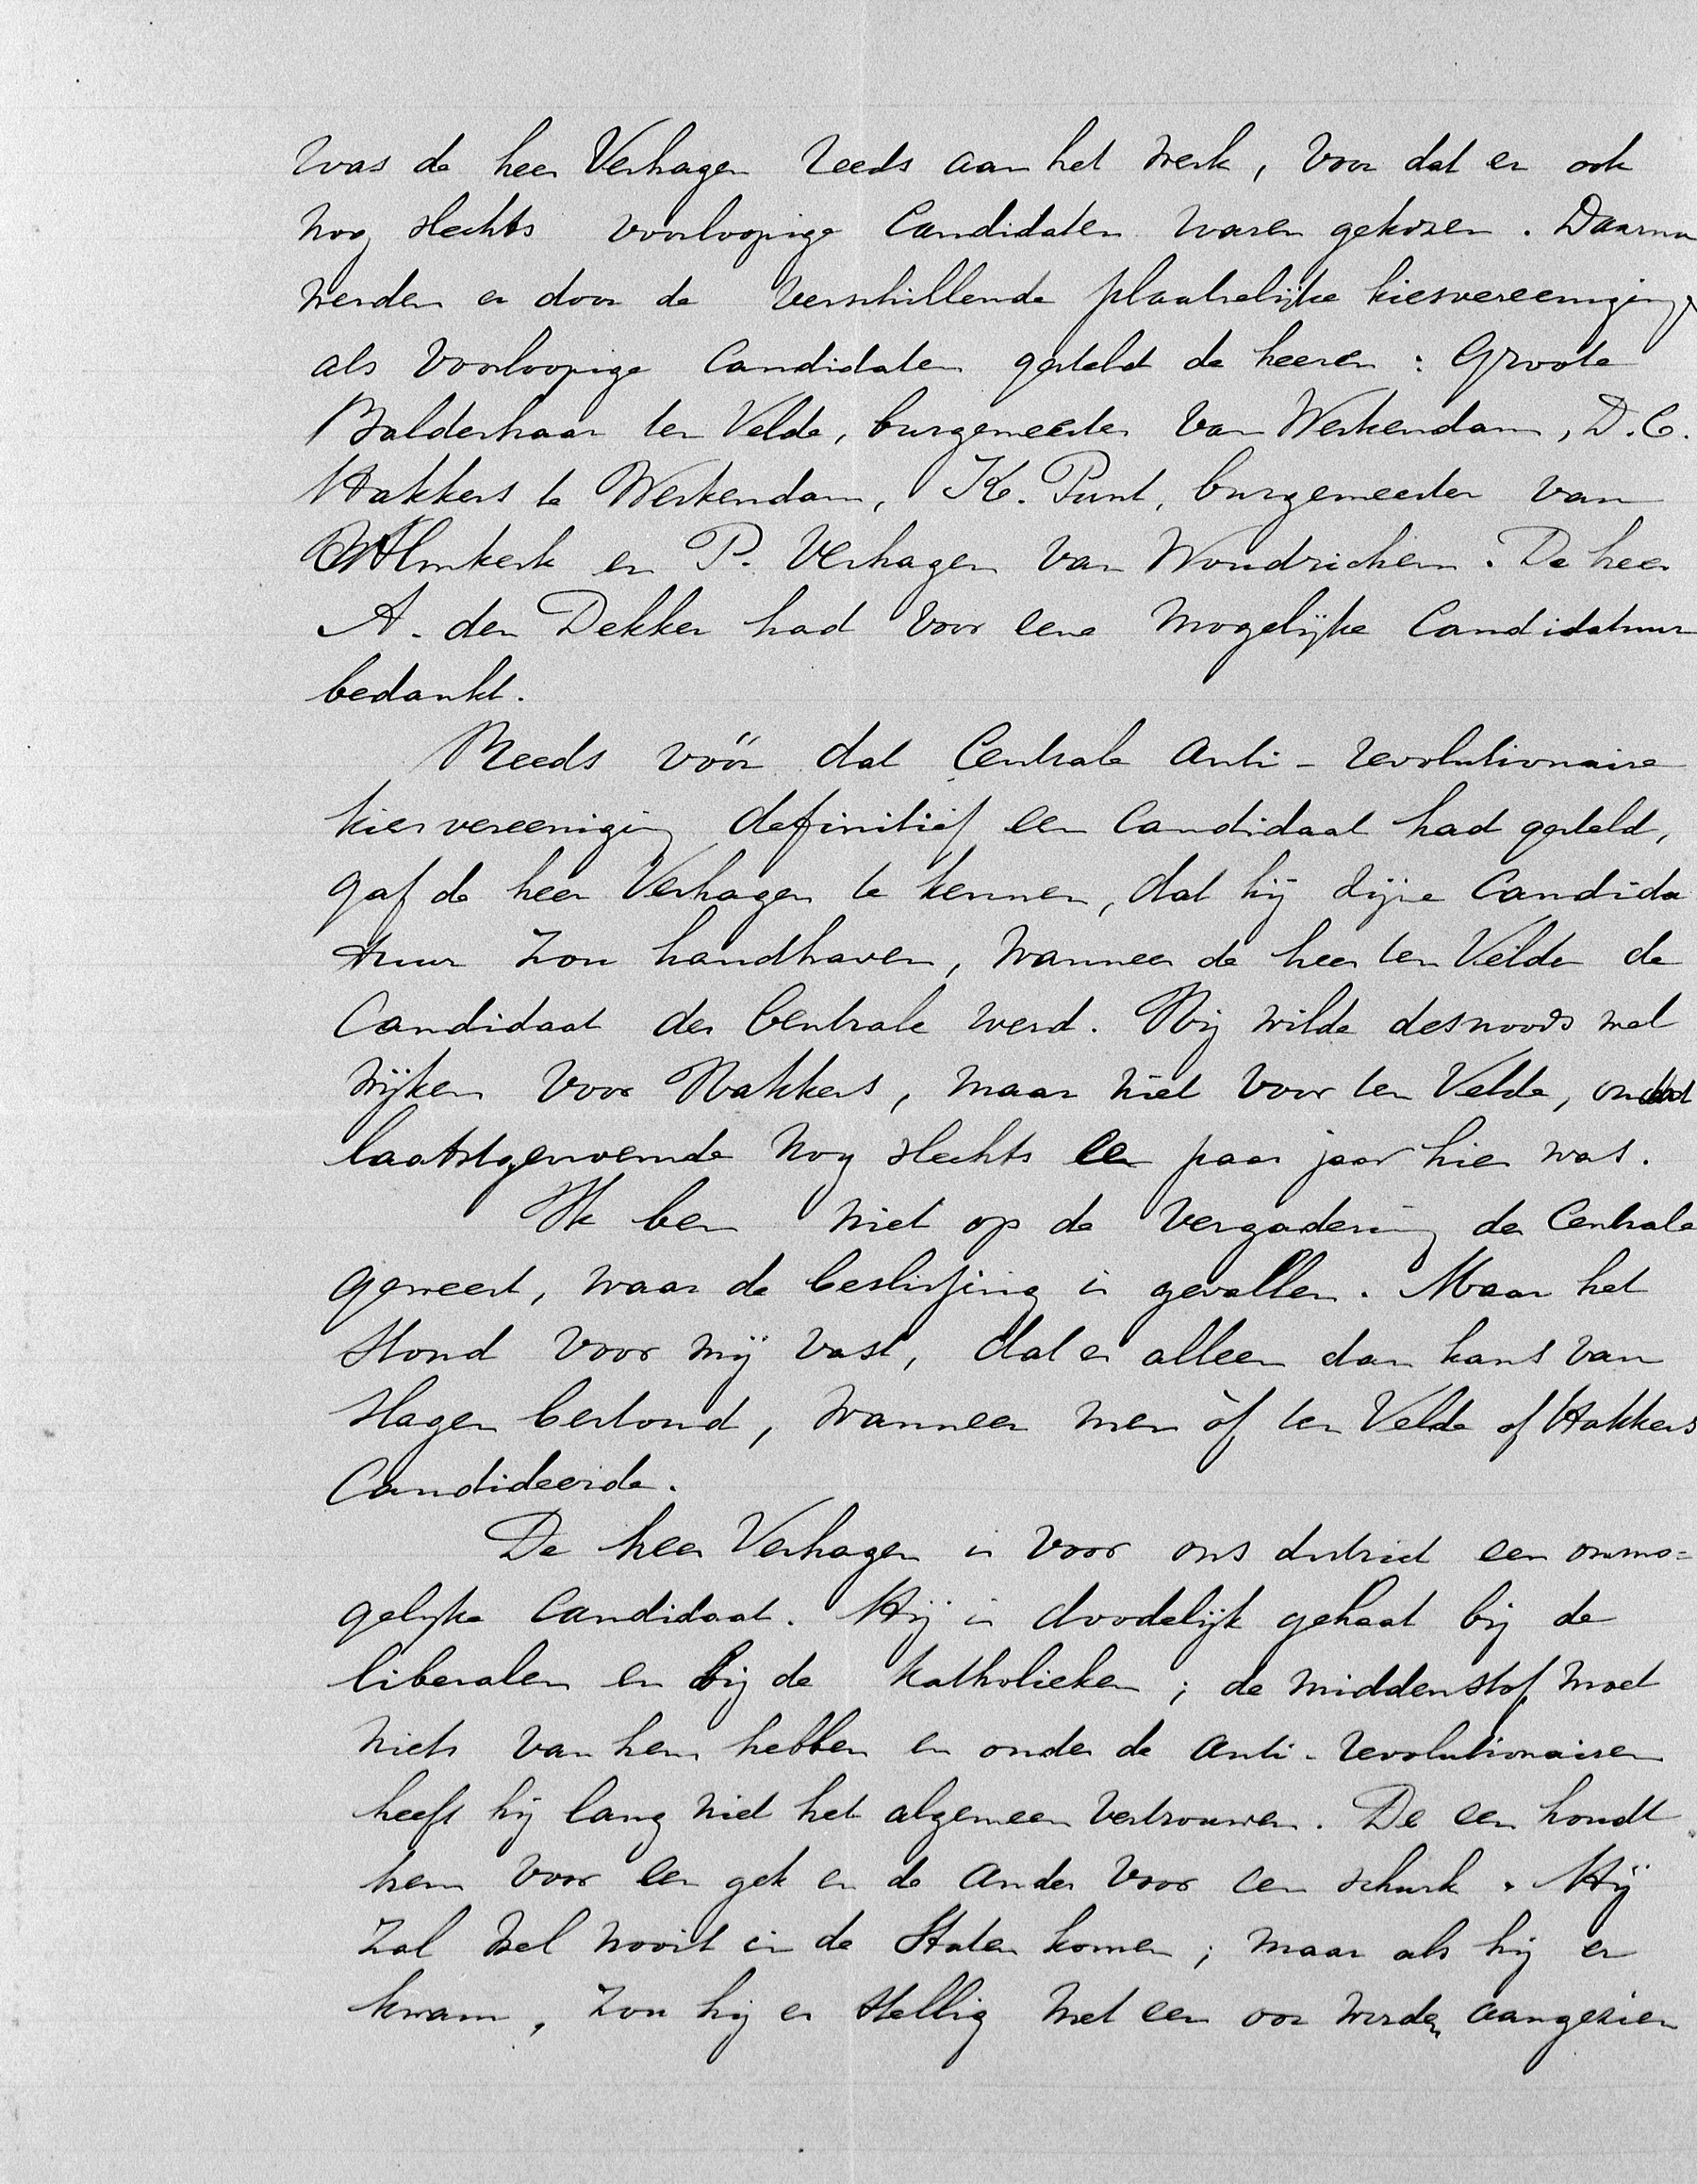 was de heer Verhagen reeds aan het werk, voor dat er ook
nog slechts voorloopige candidaten waren gekozen. Daarna
werden er door de verschillende plaatselijke kiesvereeniginge
als voorloopige candidaten gesteld de heeren: Groote
Balderhaar ten Velde, burgemeester van Werkendam, D.C.
Hakkers te Werkendam, K. Punt, burgemeester van
Almkerk en P. Verhagen van Woudrichem. De heer
A. den Dekker had voor eene mogelijke candidatuur
bedankt.
Reeds vóór dat Centrale anti-revolutionaire
kiesvereeniging definitief een candidaat had gesteld,
gaf de heer Verhagen te kennen, dat hij zijne candida
tuur zou handhaven, wanneer de heer ten Velde de
candidaat der Centrale werd. Hij wilde desnoods wel
wijken voor Hakkers, maar niet voor ten Velde, omdat
laatstgenoemde nog slechts een paar jaar hier was.
Ik ben niet op de vergadering der Centrale
geweest, waar de beslissing is gevallen. Maar het
stond voor mij vast, dat er alleen dan kans van
slagen bestond, wanneer men òf ten Velde of Hakkers
candideerde.
De heer Verhagen is voor ons district een onmo=
gelijke candidaat. Hij is doodelijk gehaat bij de
liberalen en bij de katholieken; de middenstof moet
niets van hem hebben en onder de anti-revolutionairen
heeft hij lang niet het algemeen vertrouwen. De een houdt
hem voor een gek en de ander voor een schurk. Hij
zal wel nooit in de Staten komen; maar als hij er
kwam, zou hij er stellig met een oor worden aangezien